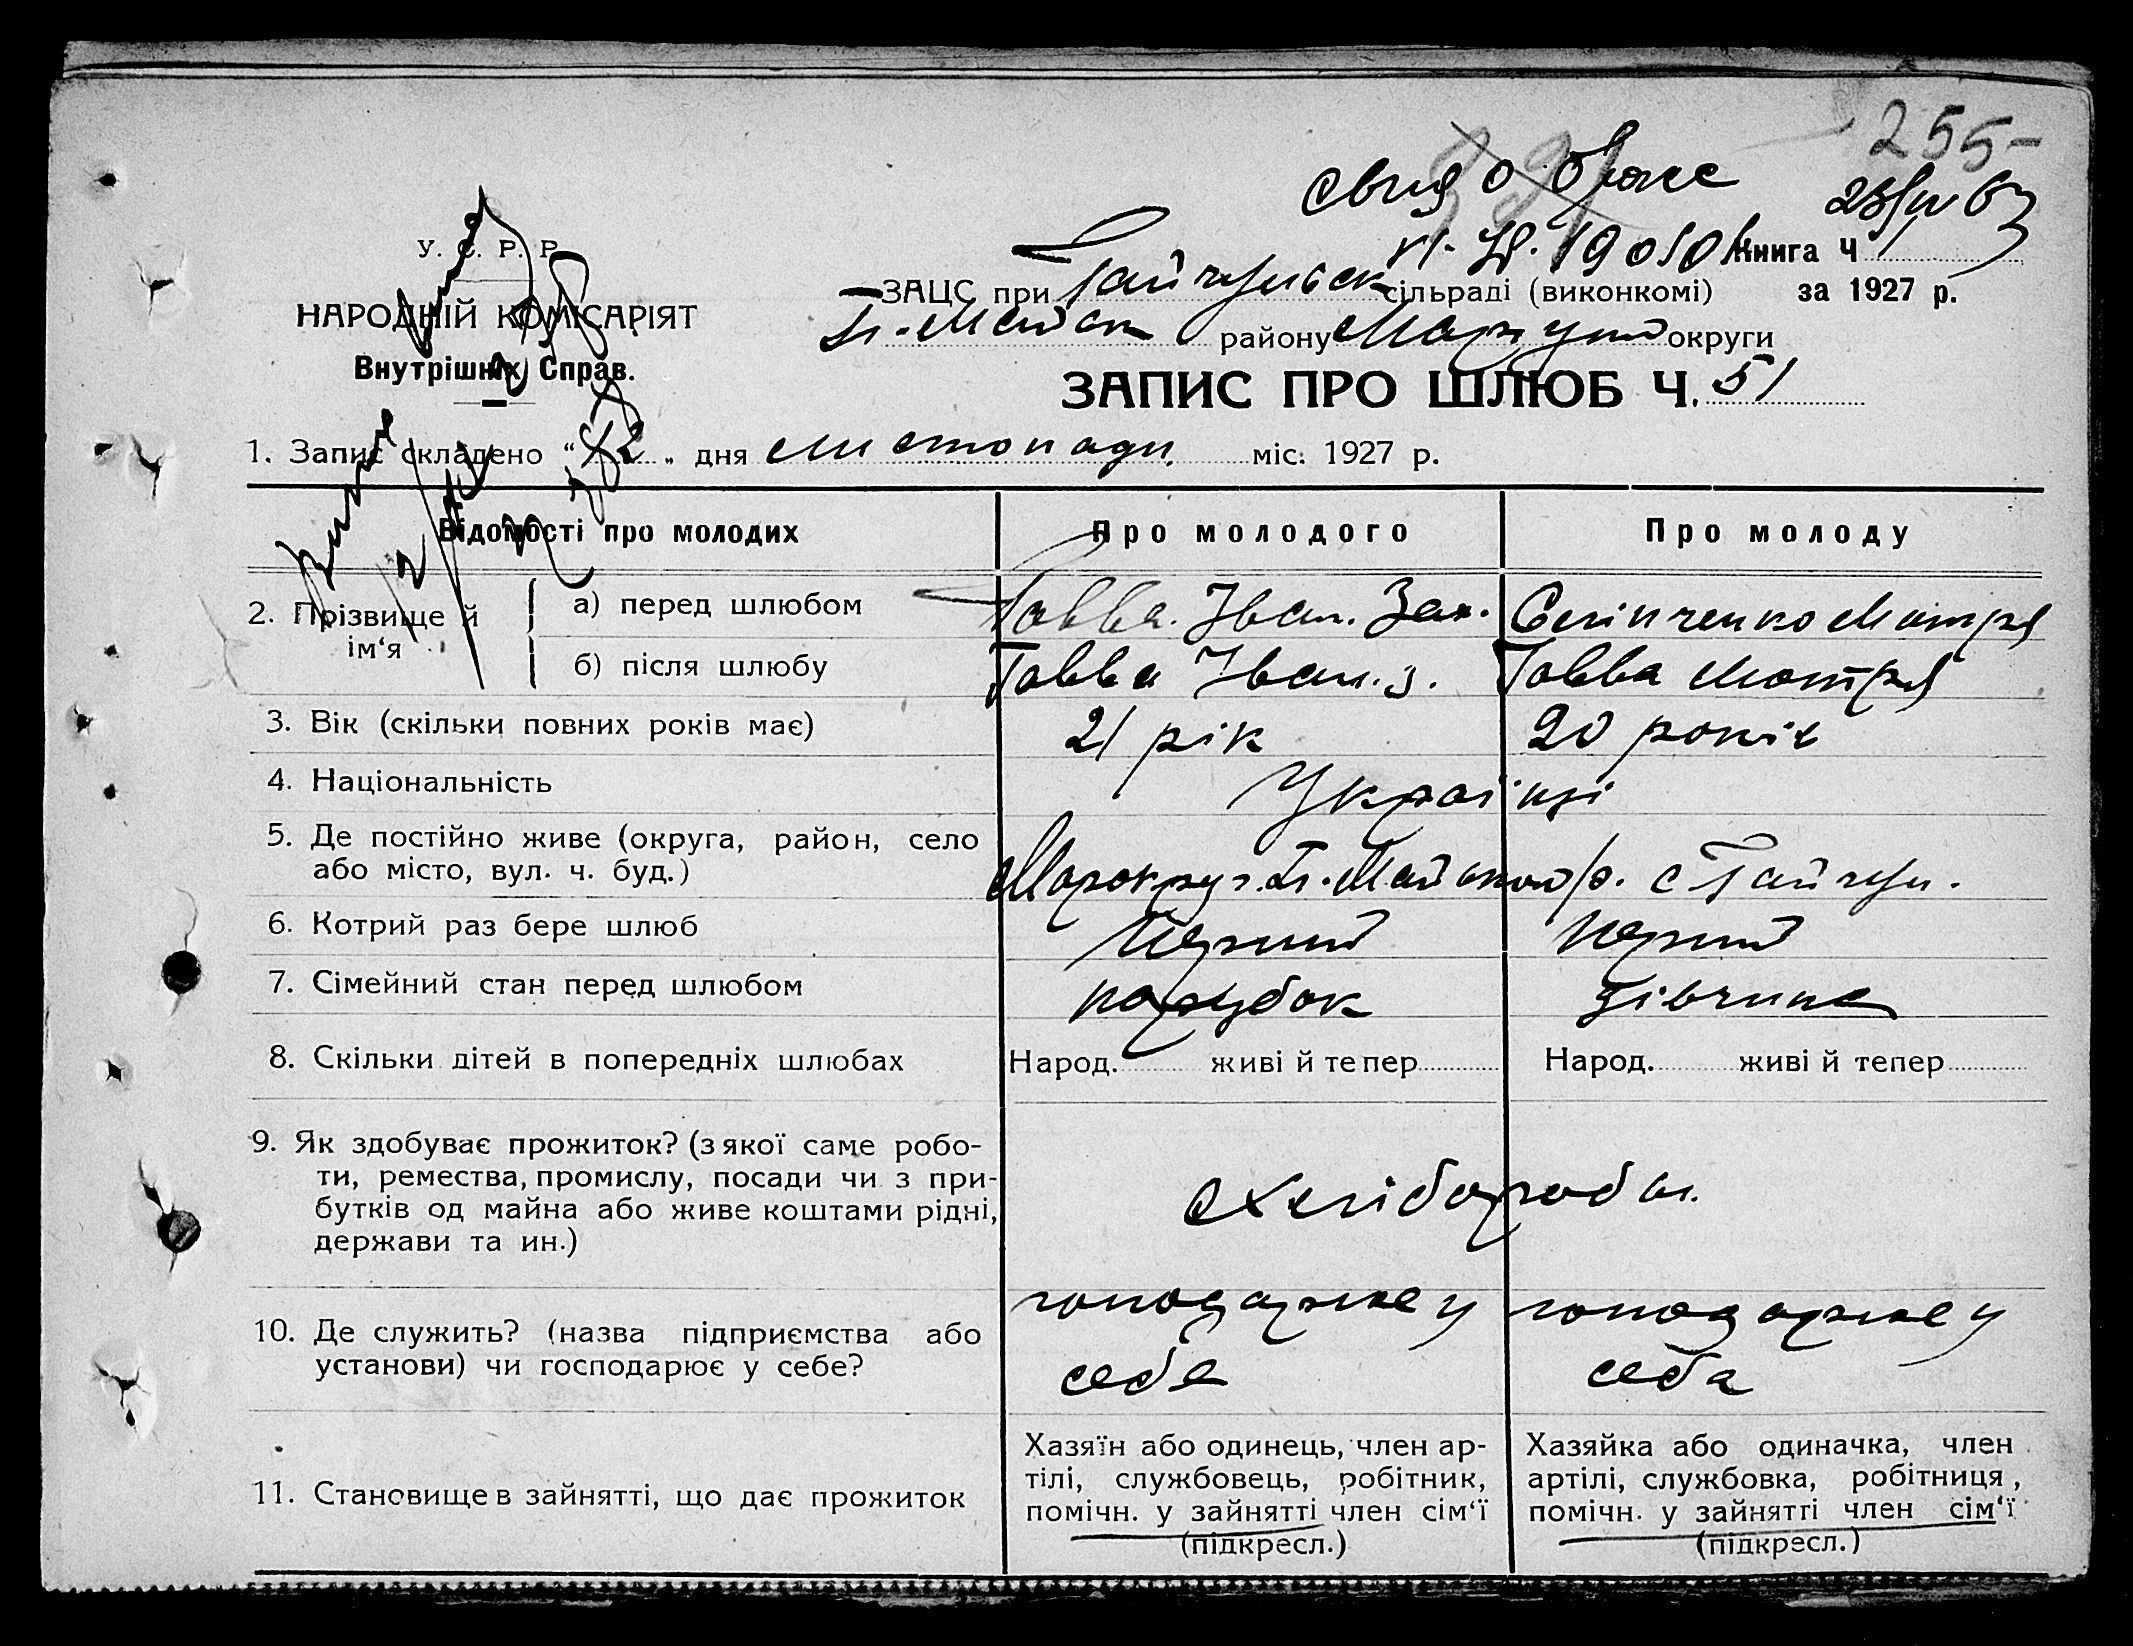 255-
Свид о браке 23/IV 63
У. С. Р. Р.
НАРОДНІЙ КОМІСАРІЯТ
Внутрішніх Справ.
Книга Ч
ЗАЦС при Гайчульськ сільраді (виконкомі) за 1927 р.
району округи
ЗАПИС ПРО ШЛЮБ Ч. 51
1. Запис складено „ “ дня листопада міс. 1927 р.
Відомості про молодих Про молодого Про молоду
2. Прізвище й ім‘я
а) перед шлюбом Савва. Іван. Зах. Мотря
б) після шлюбу Савва Іван. З. Савва Мотря
3. Вік (скільки повних років має) 21 рік 20 років
4. Національність Українці
5. Де постійно живе (округа, район, село
або місто, вул. ч. буд.) с Гайчул.
6. Котрий раз бере шлюб Перший Перший
7. Сімейний стан перед шлюбом парубок дівчина
8. Скільки дітей в попередніх шлюбах Народ. живі й тепер Народ. живі й тепер
9. Як здобуває прожиток? (з якої саме робо-
ти, ремества, промислу, посади чи з при-
бутків од майна або живе коштами рідні,
держави та ин.)
хліборобы.
10. Де служить? (назва підприємства або
установи) чи господарює у себе?
господарює у
себе
господарює у
себе
11. Становище в зайнятті, що дає прожиток
Хазяїн або одинець, член ар-
тілі, службовець, робітник,
помічн. у зайнятті член сім‘ї
(підкресл.)
Хазяйка або одиначка, член
артілі, службовка, робітниця,
помічн. у зайнятті член сім‘ї
(підкресл.)